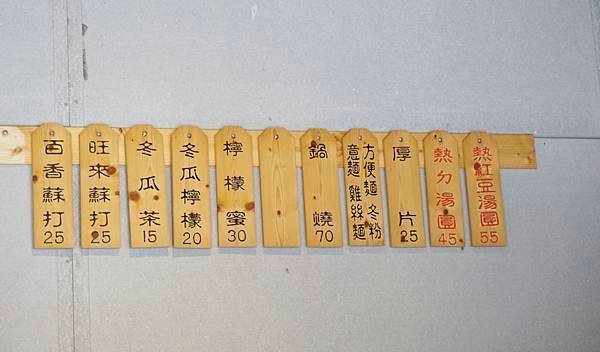 百香蘇打25
旺來蘇打25
冬瓜茶15
冬瓜檸檬20
檸檬蜜30
鍋燒70
方便麵 冬粉
意麵 雞絲麵
厚片25
熱ㄉ湯圓45
熱紅豆湯圓55